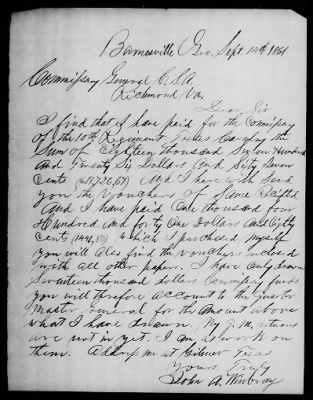 Barnesville Geo. Sept. 14th 1861
Commissary General C.S.A.
Richmond Va.
Dear Sir
I find that I have paid for the Commissary
of the 10th Regiment Texas Cavalry the
Sum of Eighteen thousand Six Hundred
and Twenty Six Dollars And Sixty Seven
Cents And I here with Send
you the Vouchers of Same
And I have paid One thousand four
Hundred and forty One Dollars And Eighty
Cents which I purchased Myself
you will also find the Vouchers inclosed
with all other papers. I have only drawn
Seventeen thousand dollars Commissary funds
you will therefore account to the Quarter
Master General for the Amount above
what I have drawn. My Q.M. returns
are not in yet. I am at work on
them. Address me at Gilmer Texas
Yours Truly
John A.